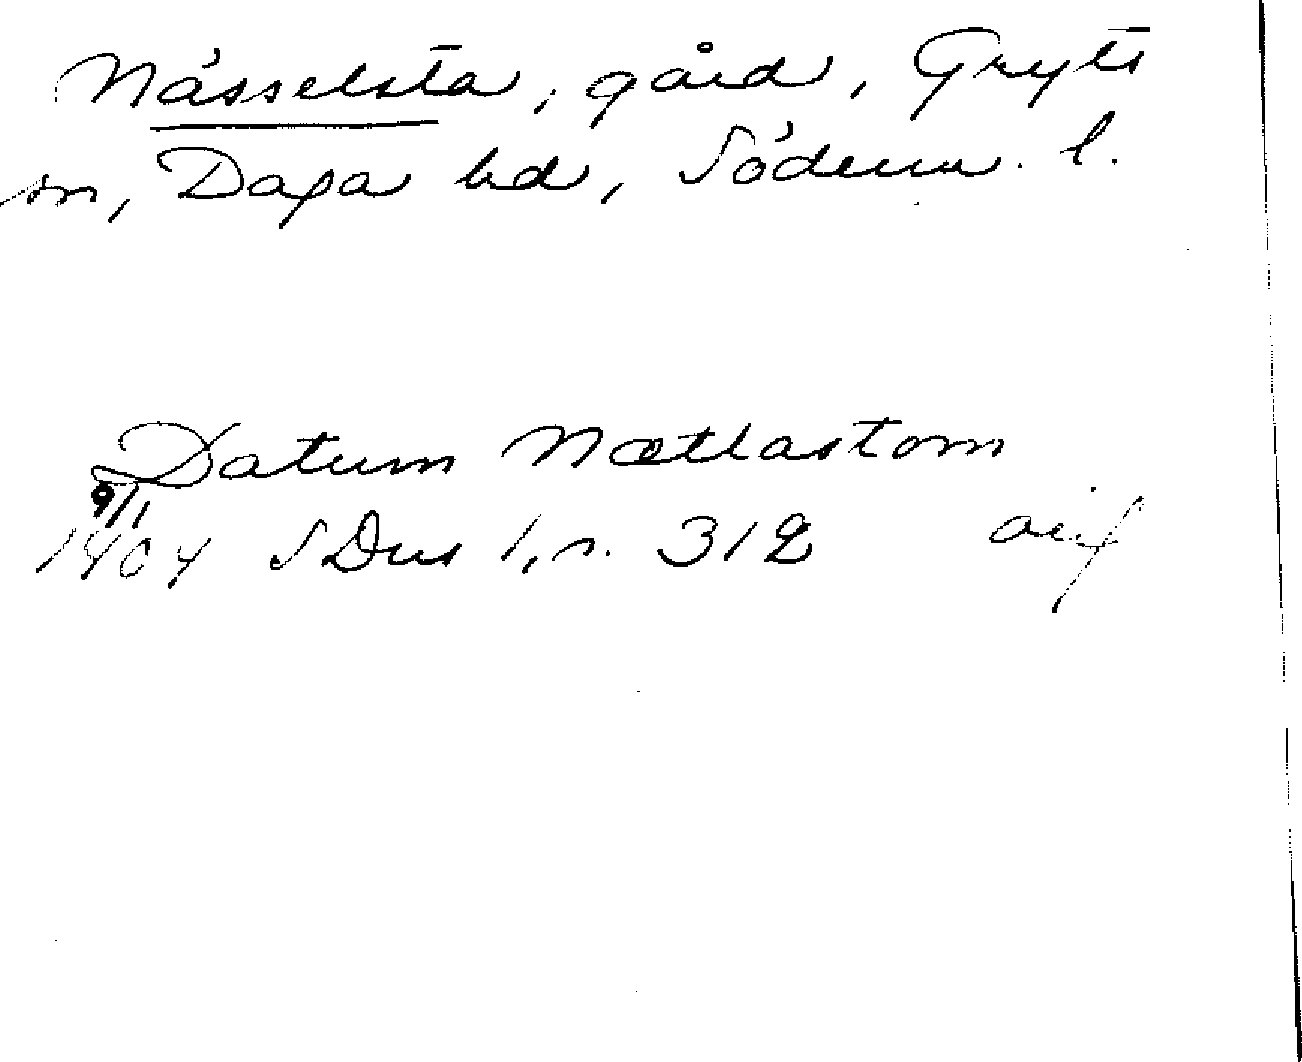 Nässelsta, gård, Gryts
sn, Daga hd, Söderm. l.
Datum Nætlastom
9/1
1404 SDns 1, s. 312 orig